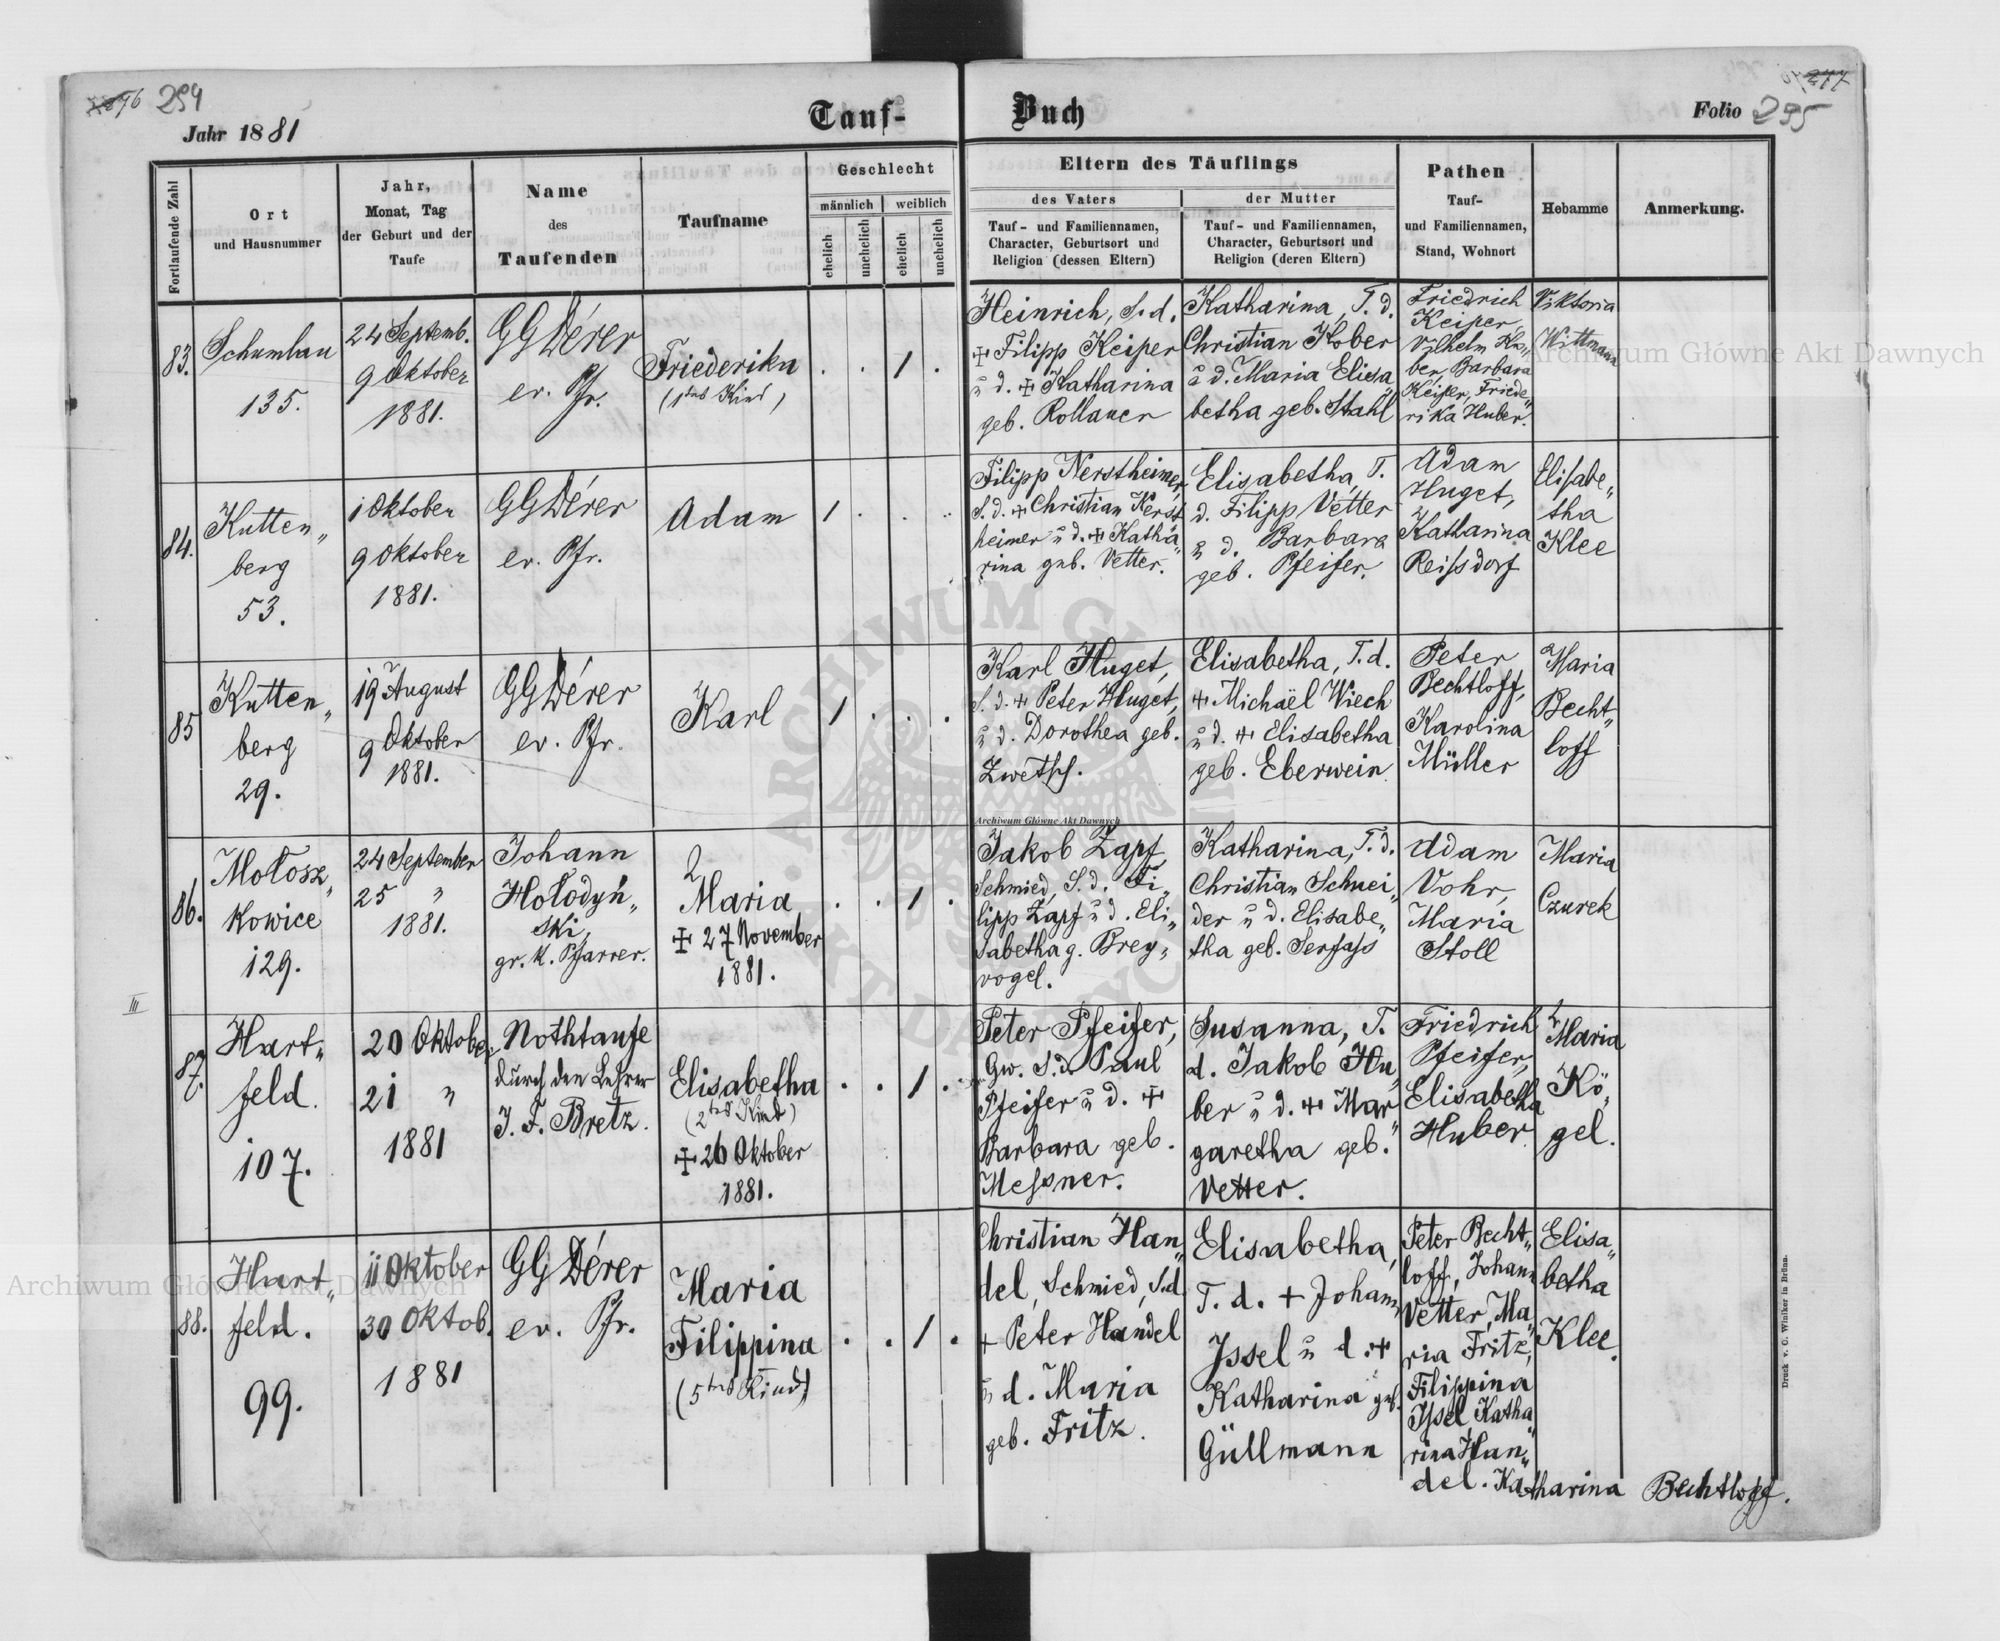 294
Jahr 1881
Tauf-
Buch
Folio 295
Fortlaufende Zahl
Ort
und Hausnummer
Jahr,
Monat, Tag
der Geburt und der
Taufe
Name
des
Taufenden
Taufname
Geschlecht
männlich
weiblich
ehelich
unehelich
ehelich
unehelich
Eltern des Täuflings
des Vaters
Tauf- und Familiennamen,
Character, Geburtsort und
Religion (dessen Eltern)
der Mutter
Tauf- und Familiennamen,
Character, Geburtsort und
Religion (deren Eltern)
Pathen
Tauf-
und Familiennamen,
Stand, Wohnort
Hebamme
Anmerkung.
83.
Schumlau
135.
24 Septemb.
9 Oktober
1881.
GGDérer
ev. Pfr.
Friederika
(1tes Kind)
. . 1 .
Heinrich, S.d.
+ Filipp Keiper
u d. + Katharina
geb. Rollauer
Katharina, T. d.
Christian Kober
u d. Maria Elisa„
betha geb. Stahl
Friedrich
Keiper,
Vilhelm Hu„
ber, Barbara
Keiper, Friede„
rika Huber.
Viktoria
Wittmann
84.
Kutten„
berg
53.
1 Oktober
9 Oktober
1881.
GGDérer
ev. Pfr.
Adam
1 . . .
Filipp Kerstheimer,
S.d. + Christian Kerst„
heimer u d. + Katha„
rina geb. Vetter.
Elisabetha, T.
d. Filipp Vetter
u d. Barbara
geb. Pfeifer.
Adam
Huget,
Katharina
Reissdorf
Elisabe„
tha
Klee
85
Kutten„
berg
29.
19 August
9 Oktober
1881.
GGDérer
ev. Pfr.
Karl
1 . . .
Karl Huget,
S.d. + Peter Huget,
u d. Dorothea geb.
Zwetsch.
Elisabetha, T.d.
+ Michaël Wiech
u d. + Elisabetha
geb. Eberwein.
Peter
Bechtloff,
Karolina
Müller
Maria
Becht„
loff
86.
Mołosz„
kowice
129.
24 September
25 „
1881.
Johann
Hołodyń„
ski,
gr. k. Pfarrer.
Maria
+ 27 November
1881.
. . 1 .
Jakob Zapf,
Schmied, S.d. Fi„
lipp Zapf u d. Eli„
sabetha g. Brey„
vogel.
Katharina, T.d.
Christian Schnei„
der u d. Elisabe„
tha geb. Serfass
Adam
Vohr,
Maria
Stoll
Maria
Czurek
III
87.
Hart„
feld.
107.
20 Oktober
21 „
1881
Nothtaufe
durch den Lehrer
J. F. Bretz.
Elisabetha
(2tes Kind)
+ 26 Oktober
1881.
. . 1 .
Peter Pfeifer,
Gw. S.d. Paul
Pfeifer u d. +
Barbara geb.
Messner.
Susanna, T.
d. Jakob Hu„
ber u d. + Mar„
garetha geb.
Vetter.
Friedrich
Pfeifer,
Elisabetha
Huber
Maria
Kö„
gel.
88.
Hart„
feld.
99.
11 Oktober
30 Oktob.
1881
GGDérer
ev. Pfr.
Maria
Filippina
(5tes Kind)
. . 1 .
Christian Han„
del, Schmied, S.d
+ Peter Handel
u d. Maria
geb. Fritz.
Elisabetha,
T. d. + Johann
Jssel u d. +
Katharina geb.
Güllmann
Peter Becht„
loff, Johann
Vetter, Ma„
ria Fritz,
Filippina
Jssel Katha„
rina Han„
del. Katharina Bechtloff.
Elisa„
betha
Klee.
Druck v. C. Winiker in Brünn.
Archiwum Główne Akt Dawnych
Archiwum Główne Akt Dawnych
Archiwum Główne Akt Dawnych